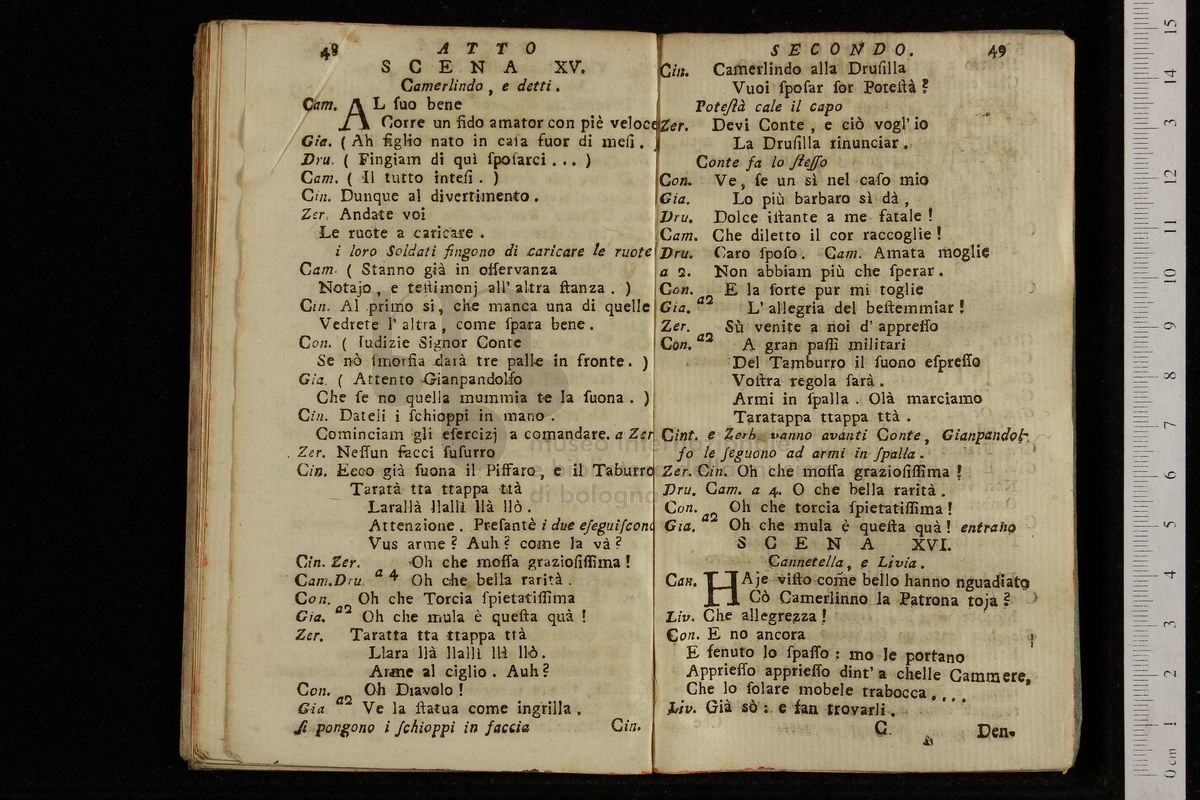 48 ATTO
SCENA XV.
Camerlindo, e detti.
Cam. AL ſuo bene
Corre un fido amator con piè veloce
Gia. ( Ah figlio nato in caſa fuor di meſi. )
Dru. ( Fingiam di quì ſpoſarci ... )
Cam. ( Il tutto inteſi. )
Cin. Dunque al divertimento.
Zer. Andate voi
Le ruote a caricare.
i loro Soldati fingono di caricare le ruote
Cam. ( Stanno già in oſſervanza
Notajo, e teſtimonj all' altra ſtanza. )
Cin. Al primo sì, che manca una di quelle
Vedrete l' altra, come ſpara bene.
Con. ( Iudizie Signor Conte
Se nò ſmorfia darà tre palle in fronte. )
Gia. ( Attento Gianpandolfo
Che ſe no quella mummia te la ſuona. )
Cin. Dateli i ſchioppi in mano.
Cominciam gli eſercizj a comandare. a Zer
Zer. Neſſun facci ſuſurro
Cin. Ecco già ſuona il Piffaro, e il Taburro
Taratà tta ttappa ttà
Larallà llallì llà llò.
Attenzione. Preſantè i due eſeguiſcono
Vus arme? Auh? come la và?
Cin. Zer. Oh che moſſa grazioſiſſima!
Cam. Dru. a 4 Oh che bella rarità.
Con. Oh che Torcia ſpietatiſſima
Gia. a2 Oh che mula è queſta quà!
Zer. Taratta tta ttappa ttà
Llara llà llallì llì llò.
Arme al ciglio. Auh?
Con. Oh Diavolo!
Gia a2 Ve la ſtatua come ingrilla.
ſi pongono i ſchioppi in faccia Cin.
SECONDO. 49
Cin. Camerlindo alla Druſilla
Vuoi ſpoſar ſor Poteſtà?
Poteſtà cale il capo
Zer. Devi Conte, e ciò vogl' io
La Druſilla rinunciar.
Conte fa lo ſteſſo
Con. Ve, ſe un sì nel caſo mio
Gia. Lo più barbaro sì dà,
Dru. Dolce iſtante a me fatale!
Cam. Che diletto il cor raccoglie!
Dru. Caro ſpoſo. Cam. Amata moglie
a 2. Non abbiam più che ſperar.
Con. E la ſorte pur mi toglie
Gia. a2 L' allegria del beſtemmiar!
Zer. Sù venite a noi d' appreſſo
Con. a2 A gran paſſi militari
Del Tamburro il ſuono eſpreſſo
Voſtra regola ſarà.
Armi in ſpalla. Olà marciamo
Taratappa ttappa ttà.
Cint. e Zerb. vanno avanti Conte, Gianpandol-
fo le ſeguono ad armi in ſpalla.
Zer. Cin. Oh che moſſa grazioſiſſima!
Dru. Cam. a 4. O che bella rarità.
Con. Oh che torcia ſpietatiſſima!
Gia. a2 Oh che mula è queſta quà! entrano
SCENA XVI.
Cannetella, e Livia.
Can. HAje viſto come bello hanno nguadiato
Cò Camerlinno la Patrona toja?
Liv. Che allegrezza!
Con. E no ancora
E fenuto lo ſpaſſo: mo le portano
Apprieſſo apprieſſo dint' a chelle Cammere,
Che lo ſolare mobele trabocca....
Liv. Già sò: e fan trovarli.
C Den-
museo internazionale
di bologna
0 cm 1 2 3 4 5 6 7 8 9 10 11 12 13 14 15